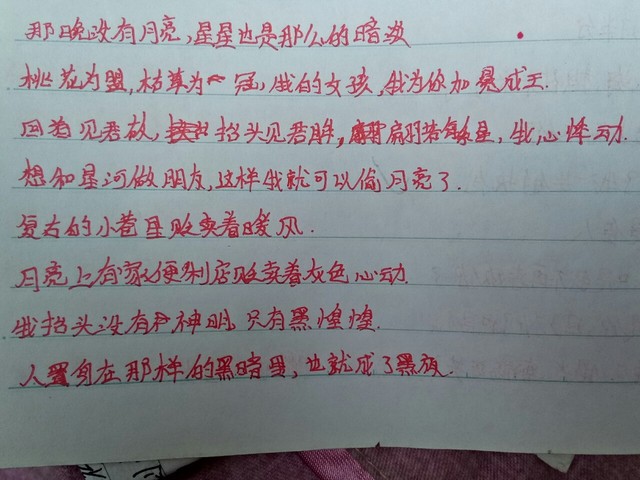 那晚没有月亮,星星也是那么的暗淡
桃花为盟,枯草为冠,我的女孩,我为你加冕成王.
回首见君故, 抬头见君眸, 扇羽若星,我心怦动.
想和星河做朋友,这样我就可以偷月亮了.
复古的小巷里贩卖着暖风.
月亮上有家便利店贩卖着灰色心动.
我抬头没有神明,只有黑煌煌.
人置身在那样的黑暗里,也就成了黑夜.